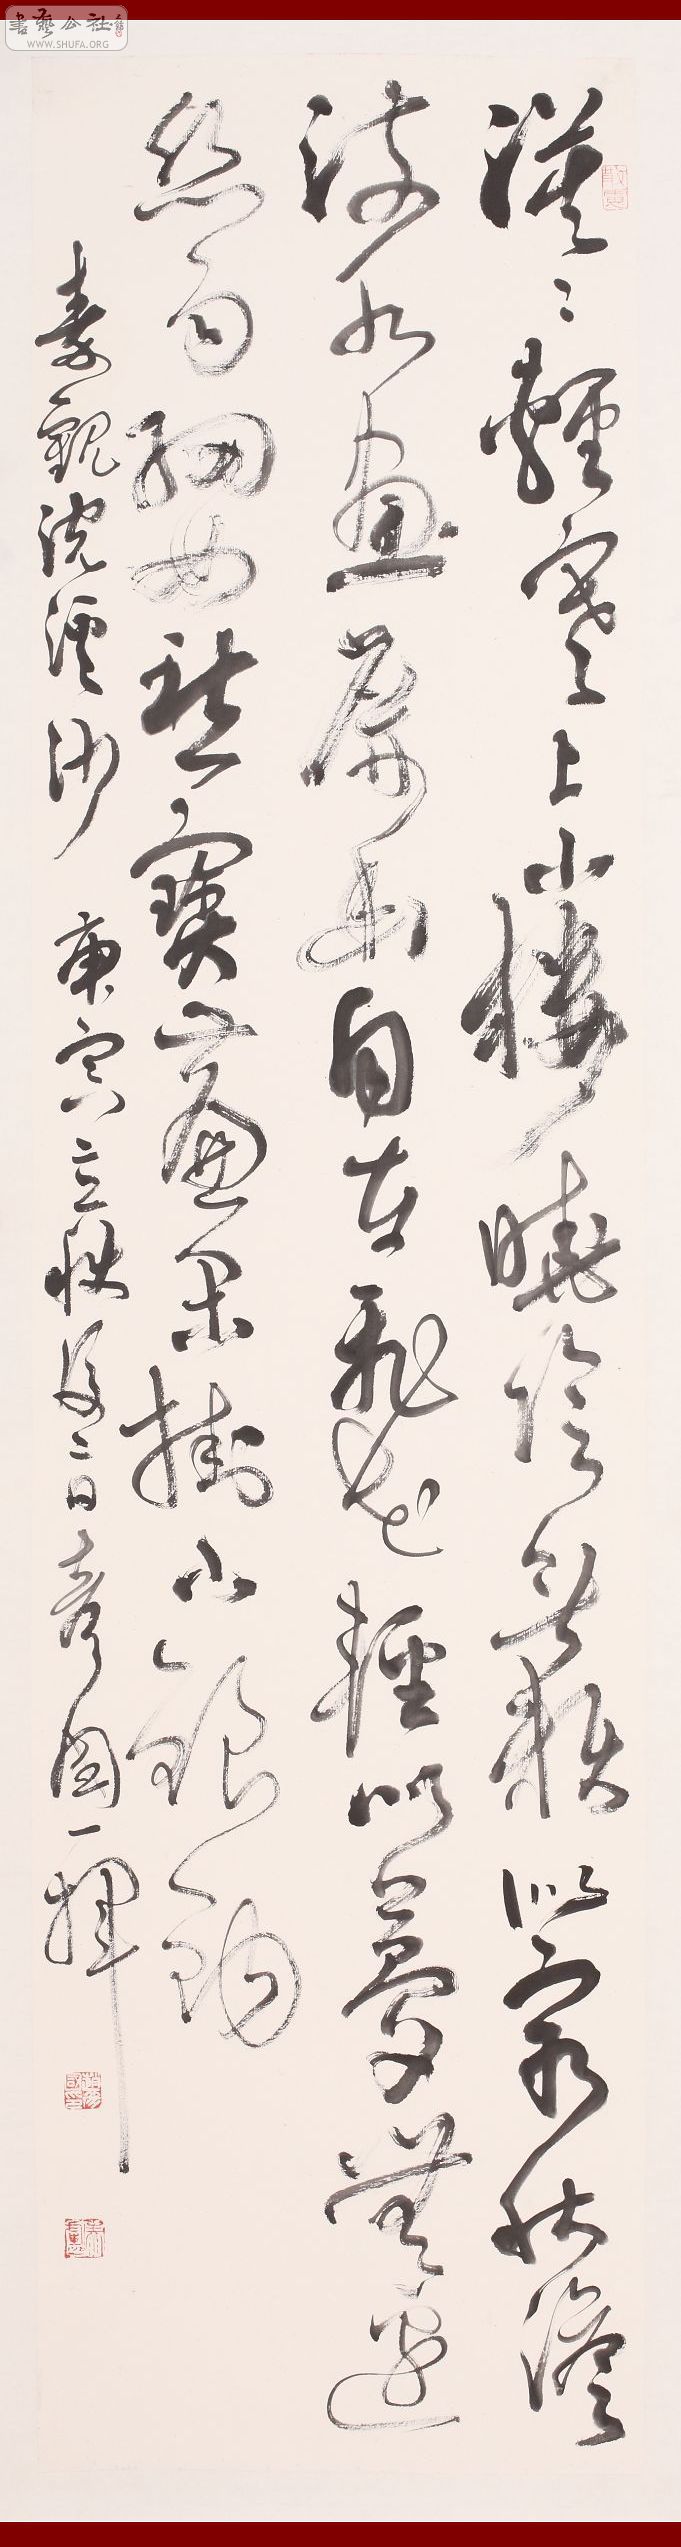 書藝公社
WWW.SHUFA.ORG
漠〻輕寒上小樓曉陰無賴似窮秋澹
流水畫屏幽自在飛花輕似夢無邊
絲雨細如愁寶簾閑掛小銀鉤
秦觀浣溪沙 庚寅立秋後二日 國揮